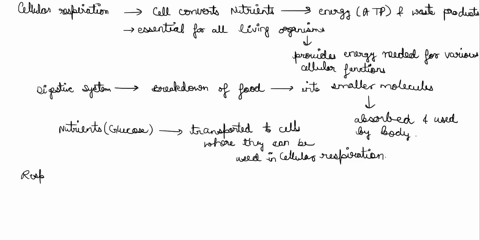 Cellular respiration → Cell converts Nutrients → energy (ATP) & waste products
→ essential for all living organisms
↓
provides energy needed for various
cellular functions
Digestive system → Breakdown of food → into smaller molecules
↓
absorbed & used
by body.
Nutrients (Glucose) → transported to cells
where they can be
used in cellular respiration.
Resp